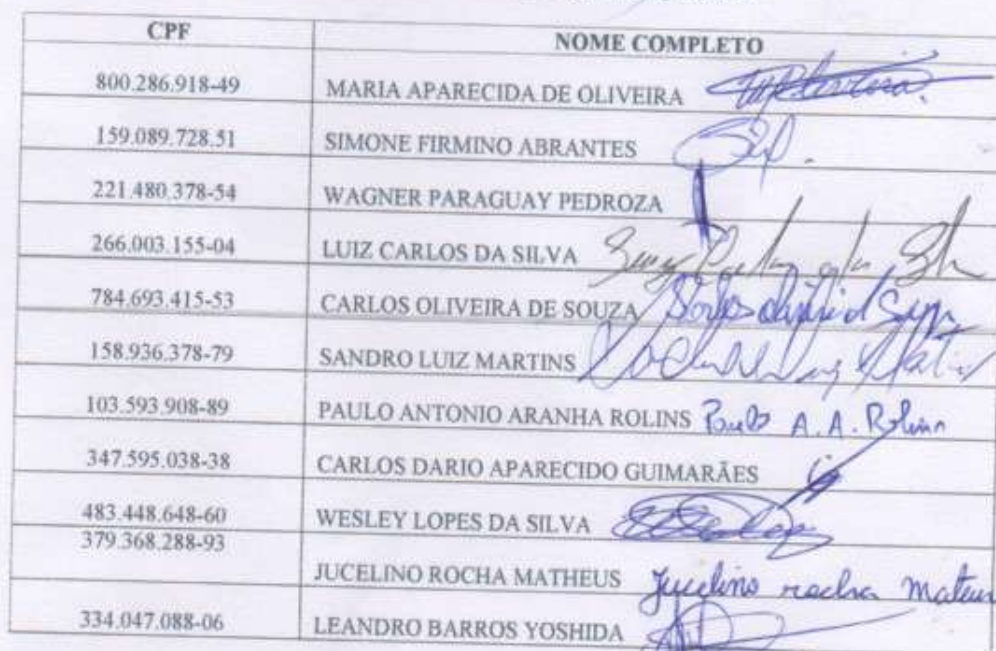 CPF NOME COMPLETO
800.286.918-49 MARIA APARECIDA DE OLIVEIRA
159.089.728.51 SIMONE FIRMINO ABRANTES
221.480.378-54 WAGNER PARAGUAY PEDROZA
266.003.155-04 LUIZ CARLOS DA SILVA
784.693.415-53 CARLOS OLIVEIRA DE SOUZA
158.936.378-79 SANDRO LUIZ MARTINS
103.593.908-89 PAULO ANTONIO ARANHA ROLINS Paulo A. A. Rolins
347.595.038-38 CARLOS DARIO APARECIDO GUIMARÃES
483.448.648-60 WESLEY LOPES DA SILVA
379.368.288-93
JUCELINO ROCHA MATHEUS Jucelino rocha Mateus
334.047.088-06 LEANDRO BARROS YOSHIDA